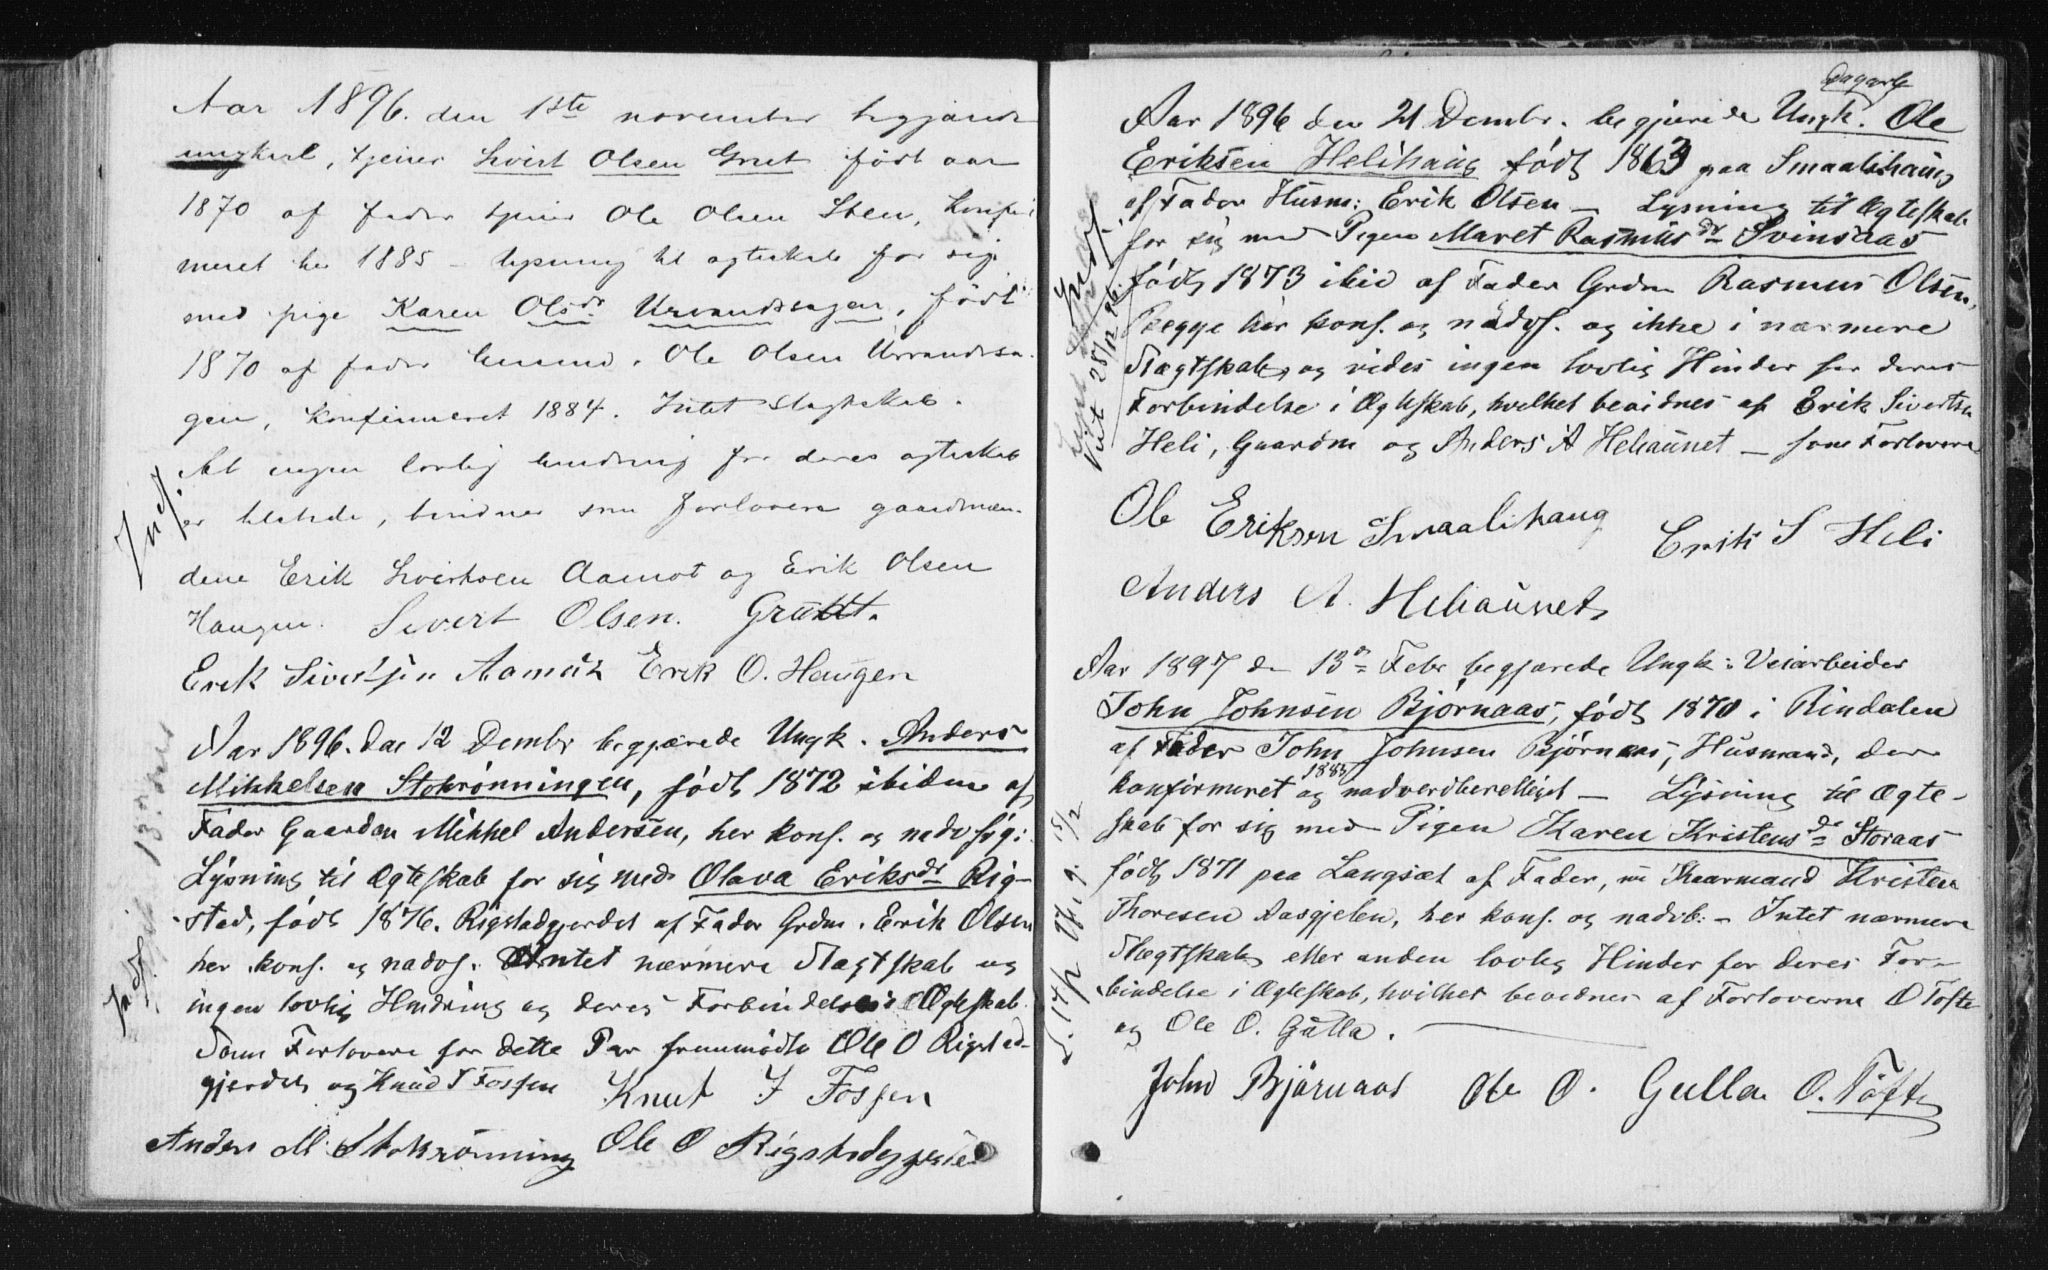 Aar 1896. den 1ste november begjærede
ungkarl, tjener Sivert Olsen Grut født aar
1870 af fader tjener Ole Olsen Sten, konfir-
meret her 1885 – lysning til ægteskab for sig
med pige Karen Olsdr Urvandssagen, født
1870 af fader husmd. Ole Olsen Urvandssa-
gen, Konfirmeret 1884. Intet slægtskab.
At ingen lovlig hindring for deres ægteskab
er tilstede, bevidner som forlovere gaardmæn-
dene Erik Sivertsen Aamot og Erik Olsen
Haugen. Sivert Olsen. Grutt.
Erik Sivertsen Aamot Erik O. Haugen
Indf.
Aar 1896. den 12 Dembr begjærede Ungk. Anders
Mikkelsen Stokrønningen, født 1872 ibidem af
Fader Gaardm Mikkel Andersen, her konf. og nadvsøg:
Lysning til Ægteskab for sig med Olava Eriksdr Rig-
stad, født 1876. Rigstadgjerdet af Fader Grdm. Erik Olsen
her konf. og nadvs. Intet nærmere Slægtskab og
ingen lovlig Hindring og deres Forbindelse i Ægteskab.
Som Forlovere for dette Par fremmødte Ole O Rigstad-
gjerdet og Knud I Fossen Knut I Fossen
Anders M. Stokrønning Ole O Rigstadgjerde
Indf.
Dagarb
Aar 1896 den 21 Dembr. begjærede Ungk. Ole
Eriksen Helihaug født 1863 paa Smaalihaug
af Fader Husm: Erik Olsen – Lysning til Ægteskab
for sig med Pigen Maret Rasmusdr Svinsaas
født 1873 ibid af Fader Grdm Rasmus Olsen,
Begge her konf. og nadvs. og ikke i nærmere
Slægtskab, og vides ingen lovlig Hinder for deres
Forbindelse i Ægteskab, hvilket bevidnes af Erik Sivertsen
Heli, Gaardm og Anders A Heliaunet – som Forlovere
Ole Eriksen Smaalihaug Erik S Heli
Anders A. Heliaunet
Indf.
Viet 28/12 96.
Aar 1897 den 13de Febr begjærede Ungk: Veiarbeider
John Johnsen Bjørnaas, født 1870 i Rindalen
af Fader John Johnsen Bjørnaas, Husmand, der
konfirmeret 1885 og nadverdberettiget – Lysning til Ægte-
skab for sig med Pigen Karen Kristensdr Storaas
født 1871 paa Langsæt af Fader, nu Kaarmand Kristen
Thoresen Aasgjelen, her konf. og nadvb: – Intet nærmere
Slægtskab eller anden lovlig Hinder for deres For-
bindelse i Ægteskab, hvilket bevidnes af Forloverne O Tofte
og Ole O. Gulla.
John Bjørnaas Ole O. Gulla O. Tofte